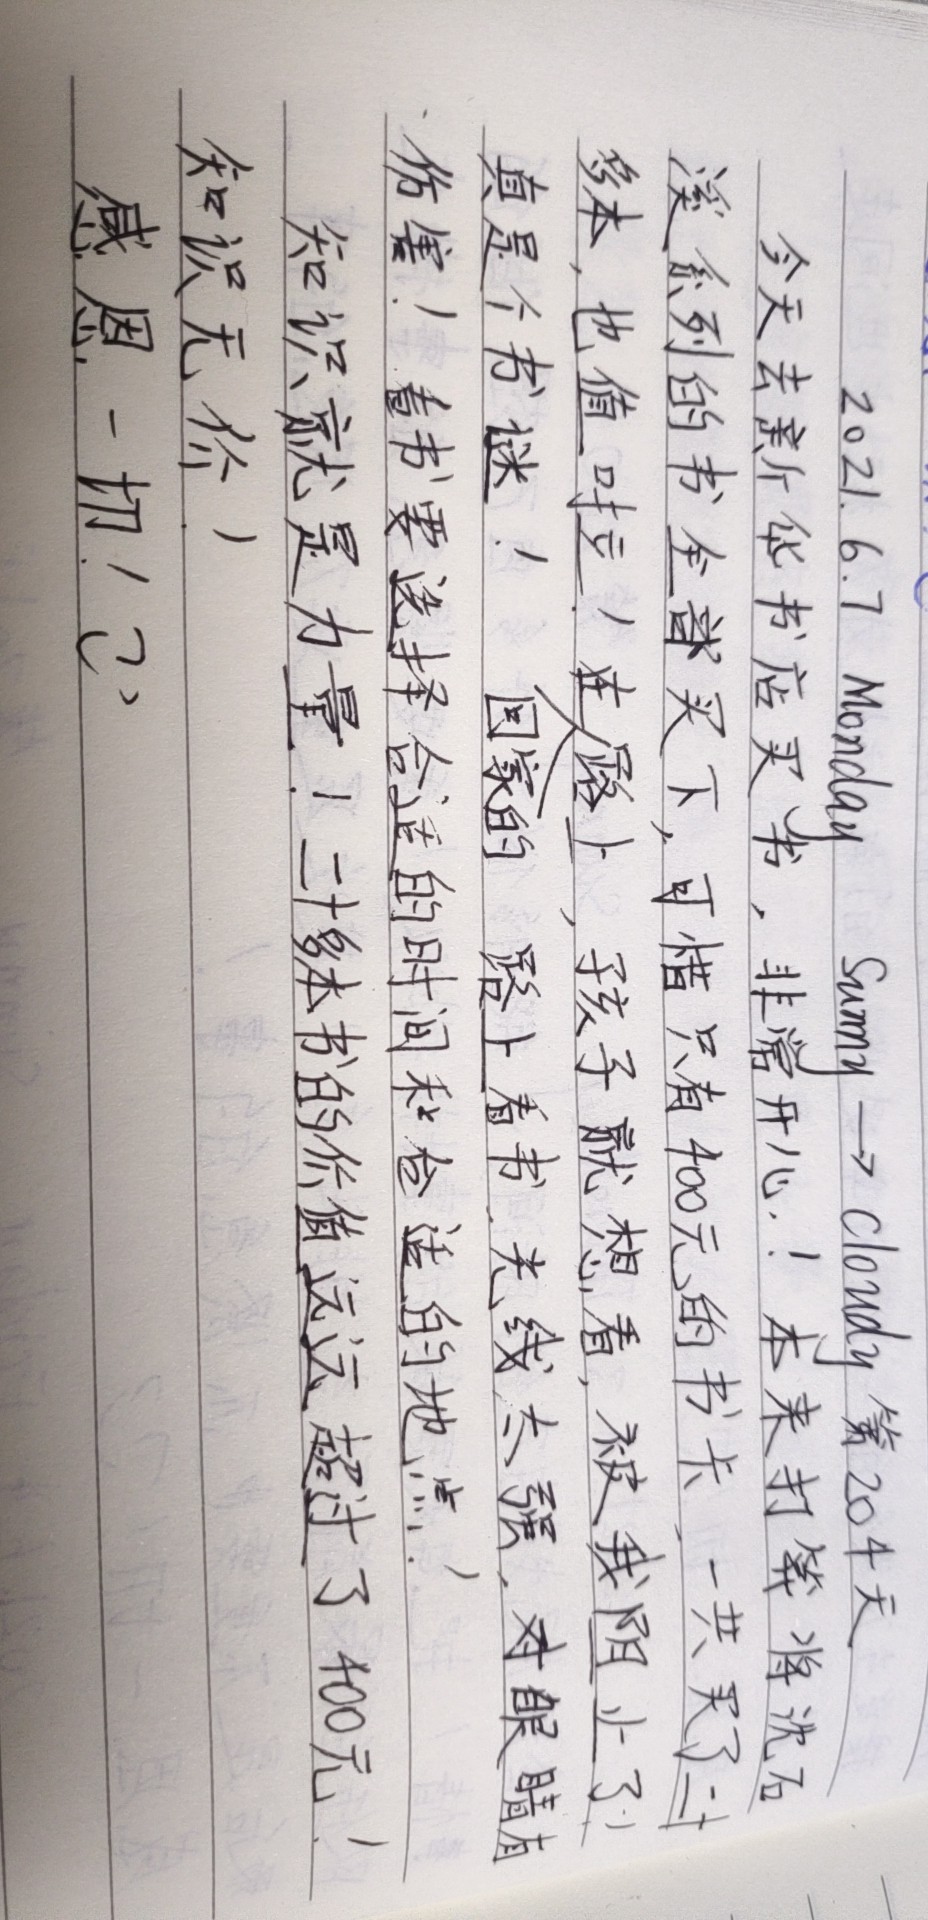 2021.6.7 Monday Sunny → Cloudy 第204天
今天去新华书店买书，非常开心！本来打算将沈石
溪系列的书全部买下，可惜只有400元的书卡，一共买了二十
多本，也值哇！在回家的路上，孩子就想看，被我阻止了！
真是个书谜！路上看书光线太强，对眼睛有
伤害！看书要选择合适的时间和合适的地点！
知识就是力量！二十多本书的价值远远超过了400元！
知识无价！
感恩一切！